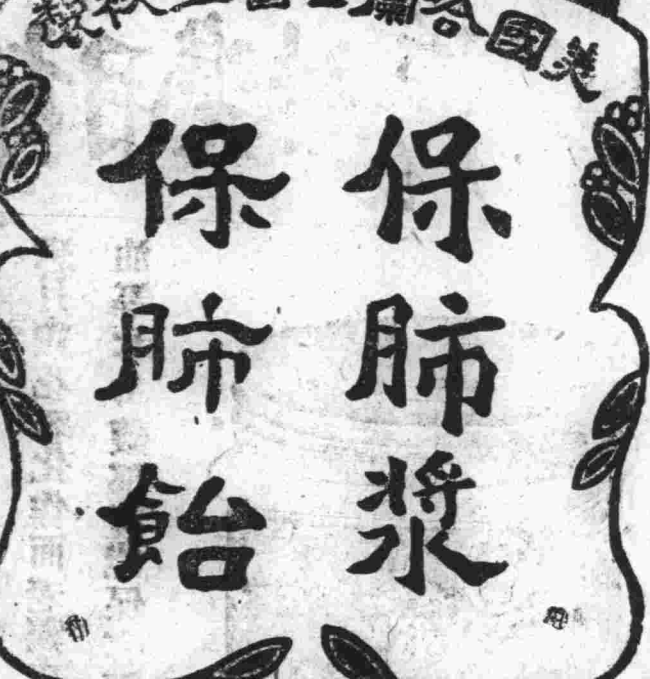 美國合
保肺漿
保肺飴